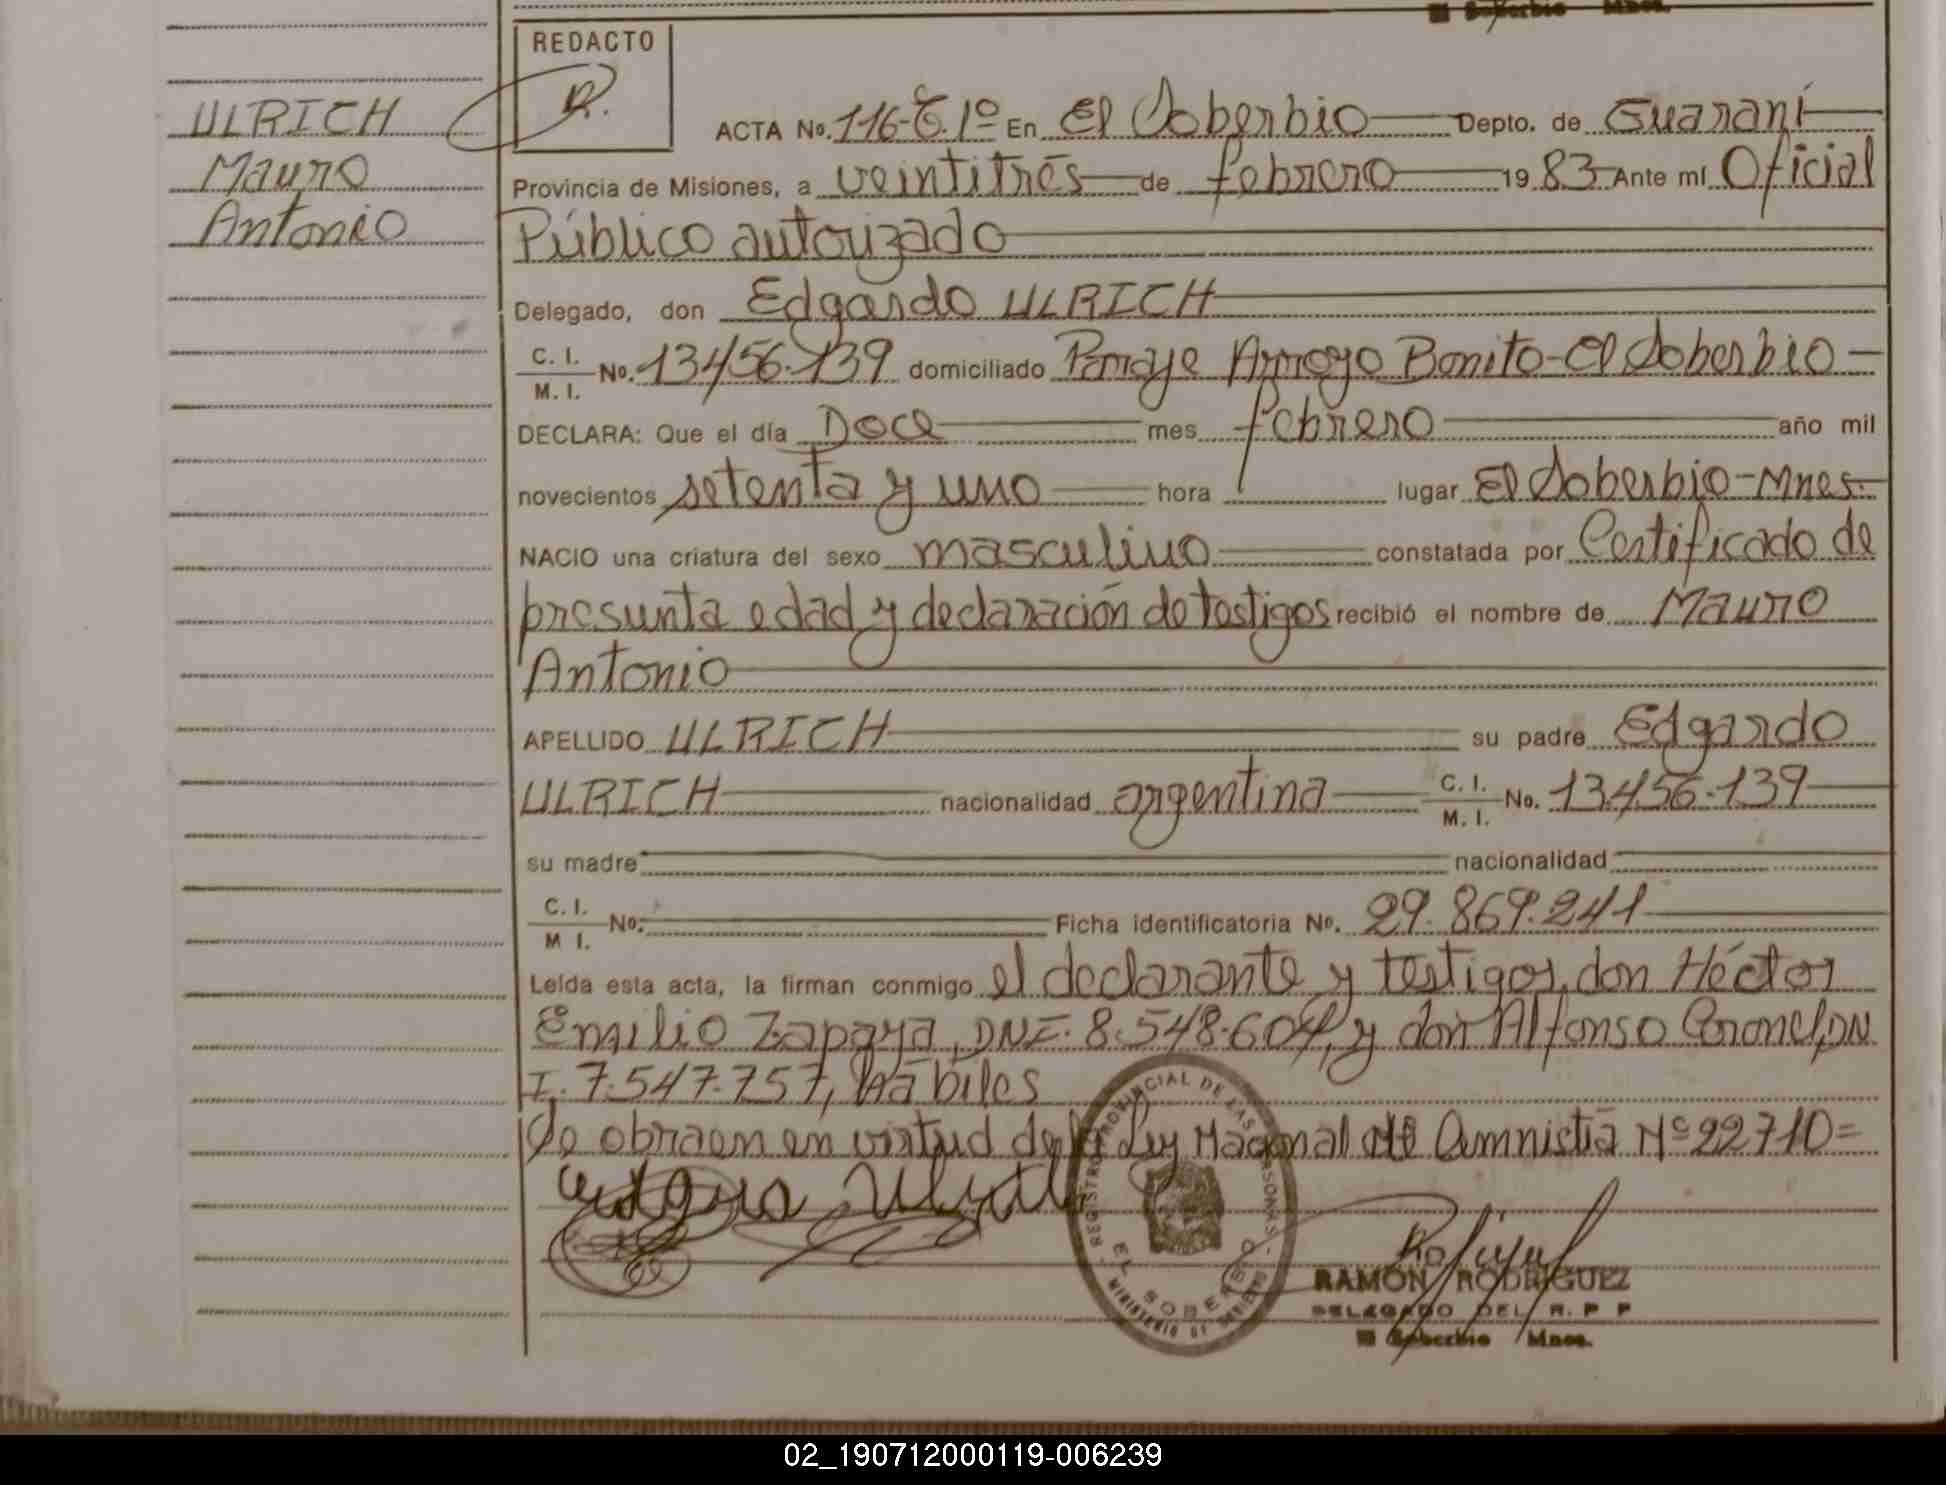 El Soberbio Mnes.
REDACTO
ULRICH
Mauro
Antonio
R.
ACTA No. 116-T. 1º En El Soberbio Depto. de Guaraní
Provincia de Misiones, a veintitrés de febrero 19 83 Ante mí Oficial
Público autorizado
Delegado, don Edgardo ULRICH
C. I. M. I. No. 13.456.139 domiciliado Paraje Arroyo Bonito-El Soberbio
DECLARA: Que el día Doce mes febrero año mil
novecientos setenta y uno hora lugar El Soberbio-Mnes.
NACIO una criatura del sexo masculino constatada por Certificado de
presunta edad y declaración de testigos recibió el nombre de Mauro
Antonio
APELLIDO ULRICH su padre Edgardo
ULRICH nacionalidad argentina C. I. M. I. No. 13.456.139
su madre nacionalidad
C. I. M I. No. Ficha identificatoria No. 29.869.241
Leída esta acta, la firman conmigo el declarante y testigos, don Héctor
Emilio Zapaya, DNI. 8.548.604, y don Alfonso Coronel, DN
I. 7.547.757, hábiles
Se obra en virtud de la Ley Nacional de Amnistía Nº 22710=
REGISTRO PROVINCIAL DE LAS PERSONAS
EL SOBERBIO
MINISTERIO DE GOBIERNO
RAMON RODRIGUEZ
DELEGADO DEL R. P P
El Soberbio Mnes.
02_190712000119-006239